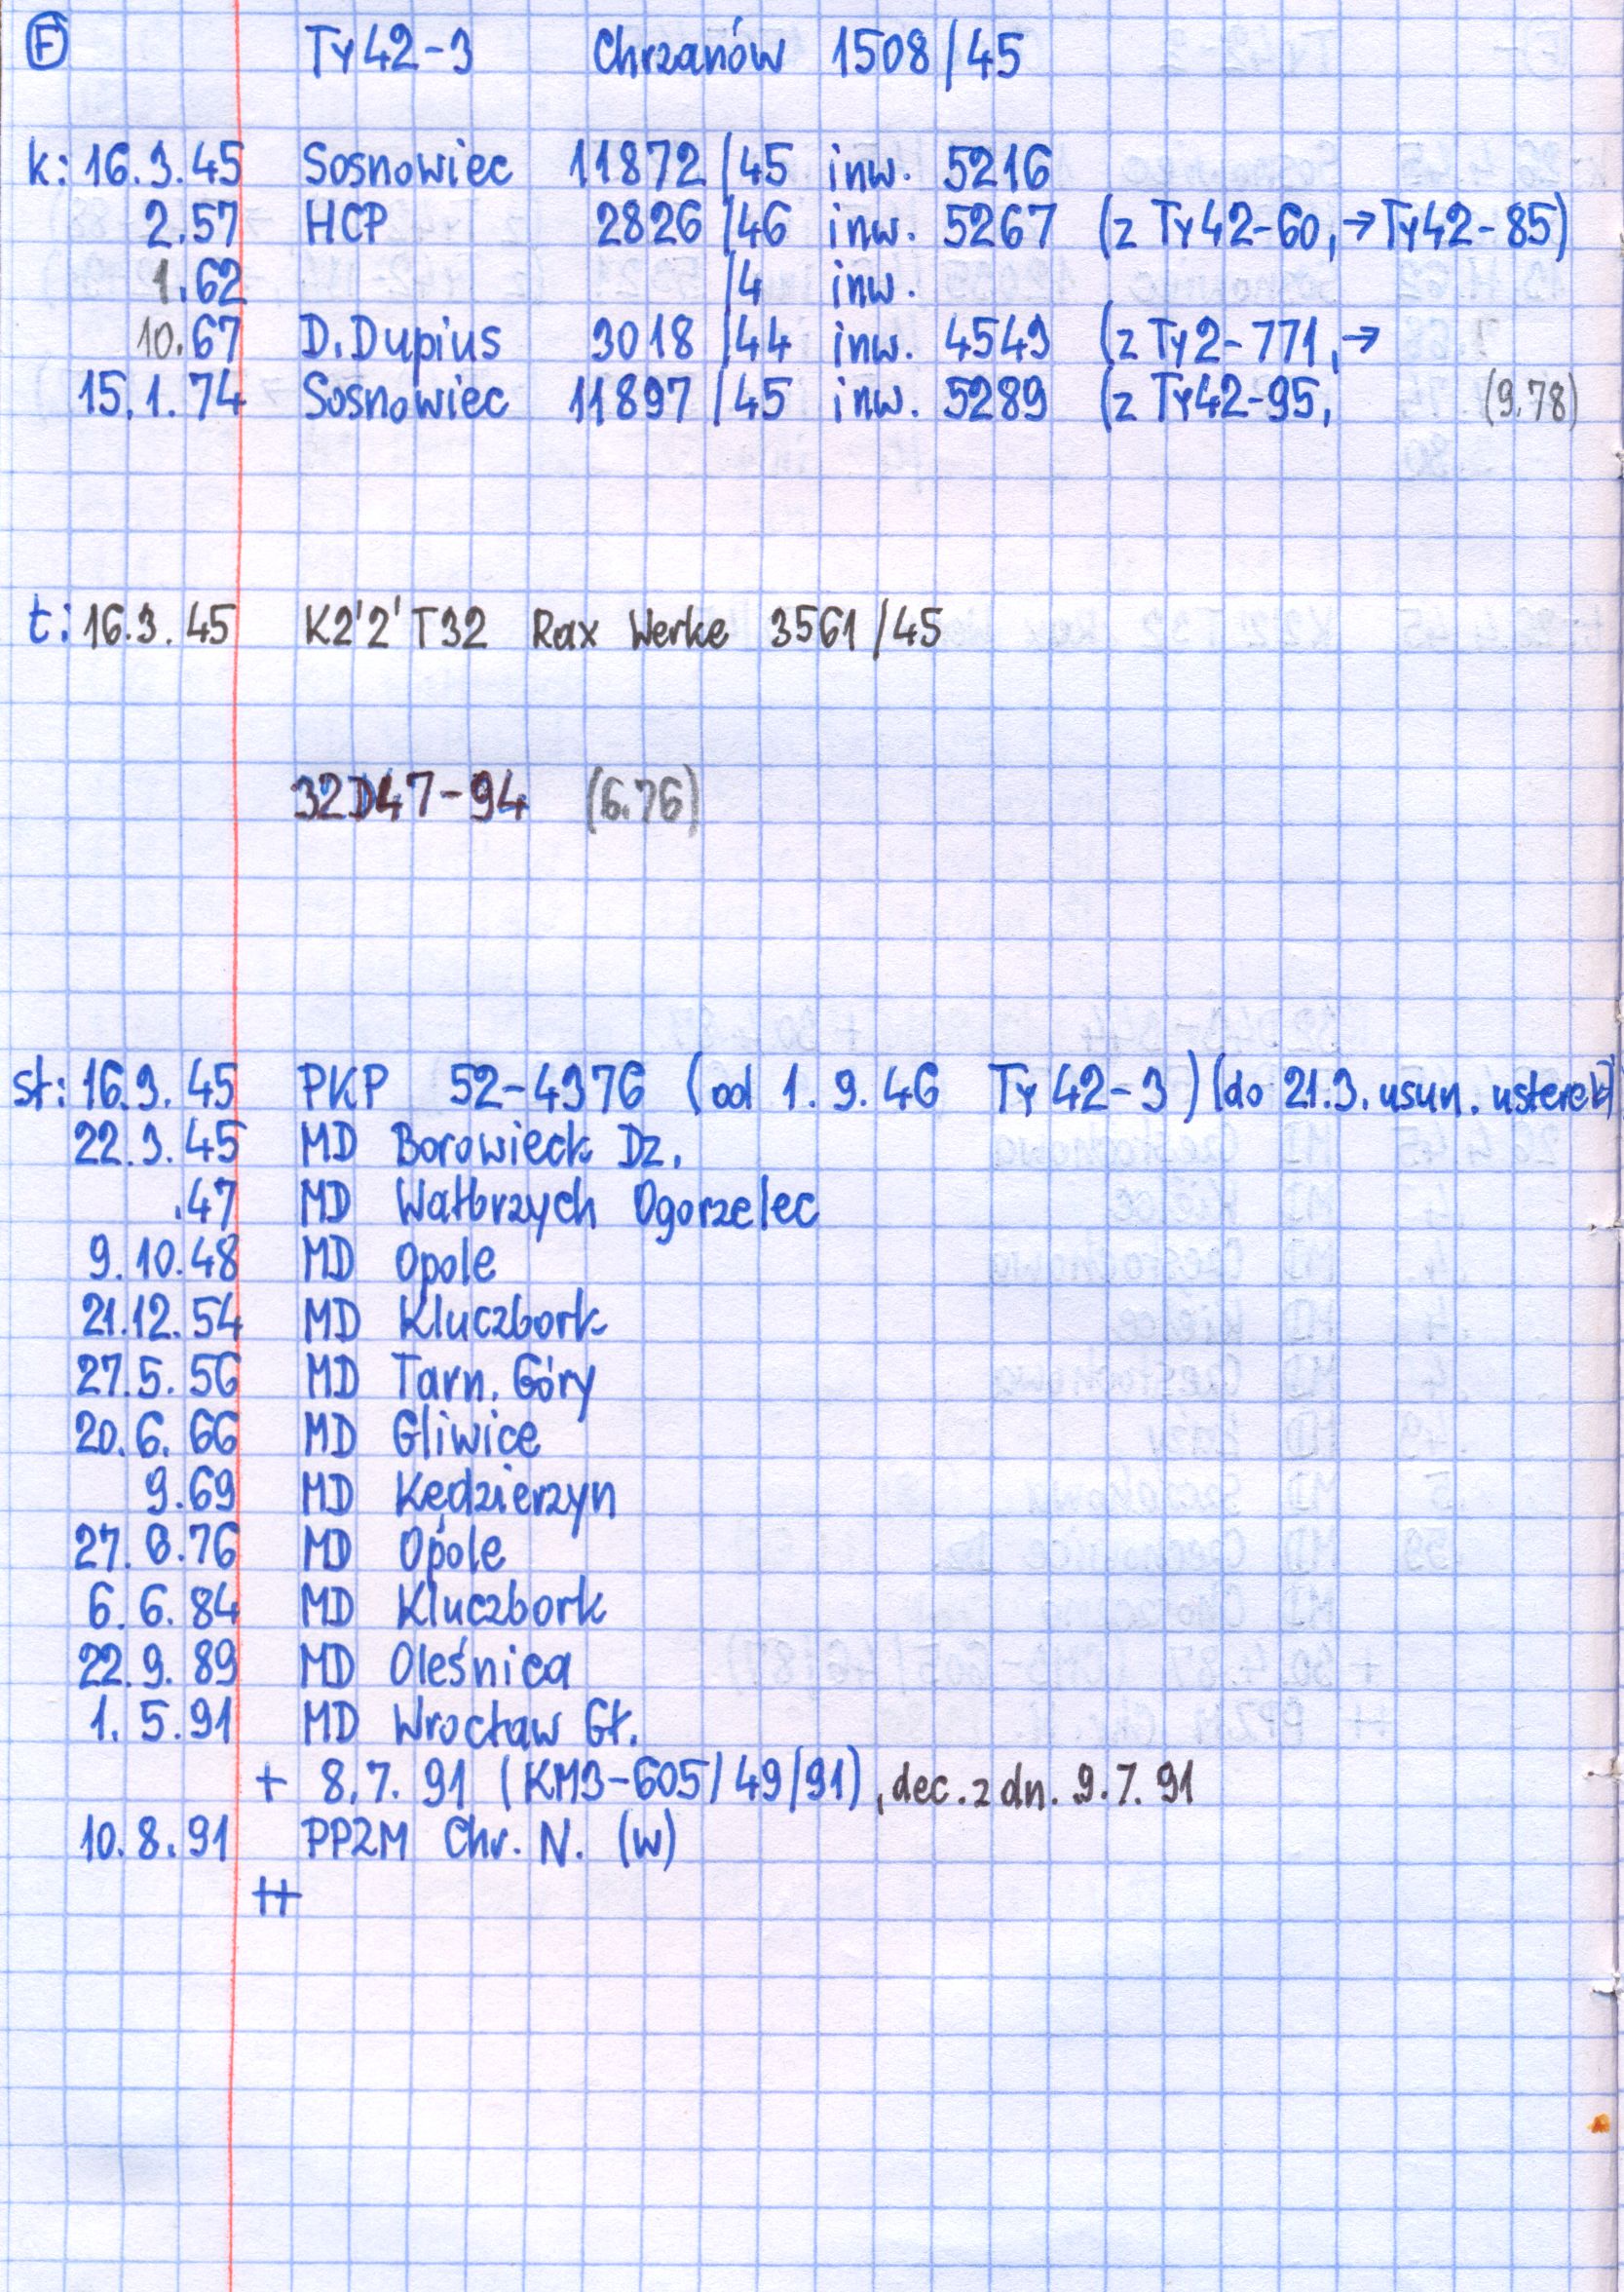 F Ty42-3 Chrzanów 1508/45
k: 16.3.45 Sosnowiec 11872/45 inw. 5216
2.57 HCP 2826/46 inw. 5267 (z Ty42-60, → Ty42-85)
1.62 /4 inw.
10.67 D.Dupius 3018/44 inw. 4543 (z Ty2-771, →
15.1.74 Sosnowiec 11897/45 inw. 5289 (z Ty42-95, (9.78)
t: 16.3.45 K2'2'T32 Rax Werke 3561/45
32D47-94 (6.76)
st: 16.3.45 PKP 52-4376 (od 1.9.46 Ty42-3) (do 21.3. usun. usterek)
22.3.45 MD Borowieck Dz.
.47 MD Wałbrzych Ogorzelec
9.10.48 MD Opole
21.12.54 MD Kluczbork
27.5.56 MD Tarn. Góry
20.6.66 MD Gliwice
9.69 MD Kędzierzyn
27.6.76 MD Opole
6.6.84 MD Kluczbork
22.9.89 MD Oleśnica
1.5.91 MD Wrocław Gł.
+ 8.7.91 (KM3-605/49/91), dec. z dn. 9.7.91
10.8.91 PPZM Chr. N. (w)
++